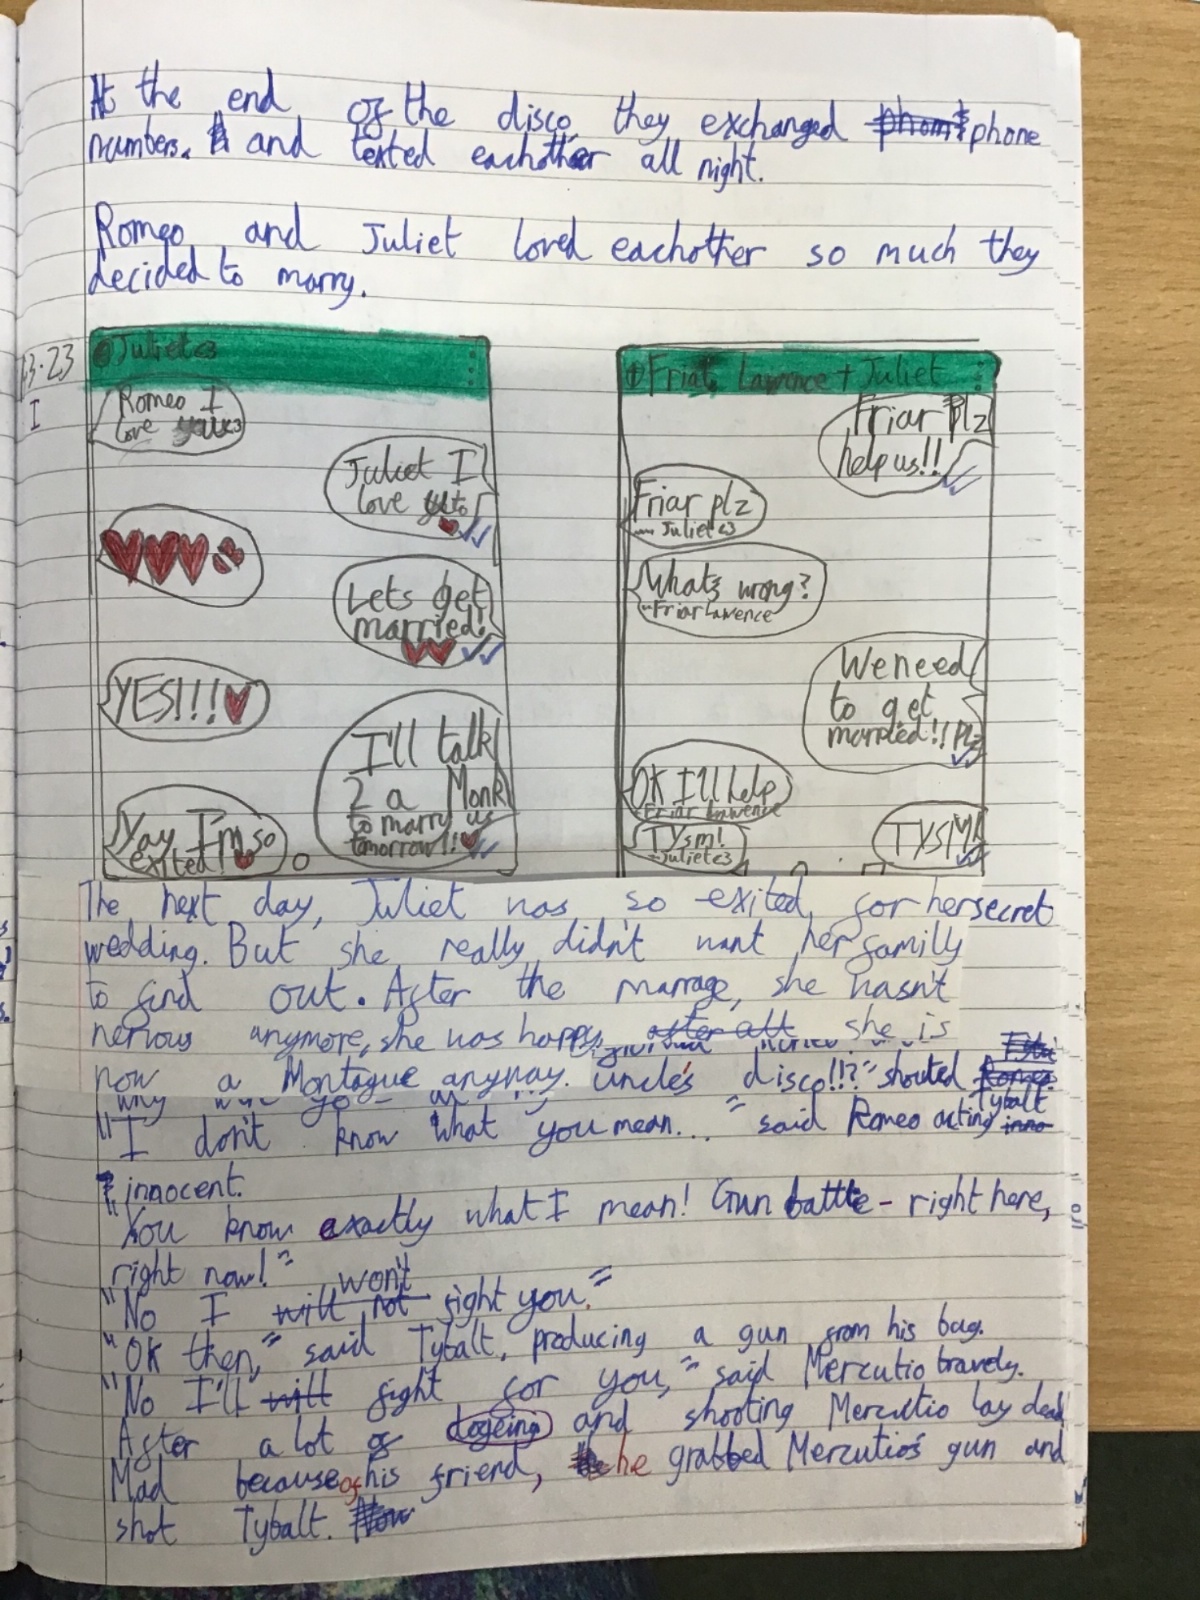 At the end of the disco they exchanged phone
numbers. and texted eachother all night.
Romeo and Juliet loved eachother so much they
decided to marry.
3.23
I
Juliet <3
Romeo I
love
Juliet I
love
Lets get
married!
YES!!!
I'll talk
2 a Monk
to marry us
tomorrow!!
Yay I'm so
exited!
Friar Lawrence + Juliet
Friar Plz
help us!!
Friar plz
~ Juliet <3
What's wrong?
~Friar Lawrence
We need
to get
married!! Plz
OK I'll help
~Friar Lawrence
TYsm!
~Juliet <3
TYSM!
The next day, Juliet was so exited for her secret
wedding. But she really didn't want her family
to find out. After the marrage, she wasn't
nervous anymore, she was happy, after all she is
now a Montague anyway. uncle's disco!!?" shouted Romeo
Tybalt
"I don't know what you mean..." said Romeo acting inno
innocent.
"You know exactly what I mean! Gun battle - right here,
right now!"
"No I will not won't fight you."
"OK then," said Tybalt, producing a gun from his bag.
"No I'll will fight for you," said Mercutio bravely.
After a lot of dogeing and shooting Mercutio lay dead
Mad because of his friend, he grabbed Mercutio's gun and
shot Tybalt. Now